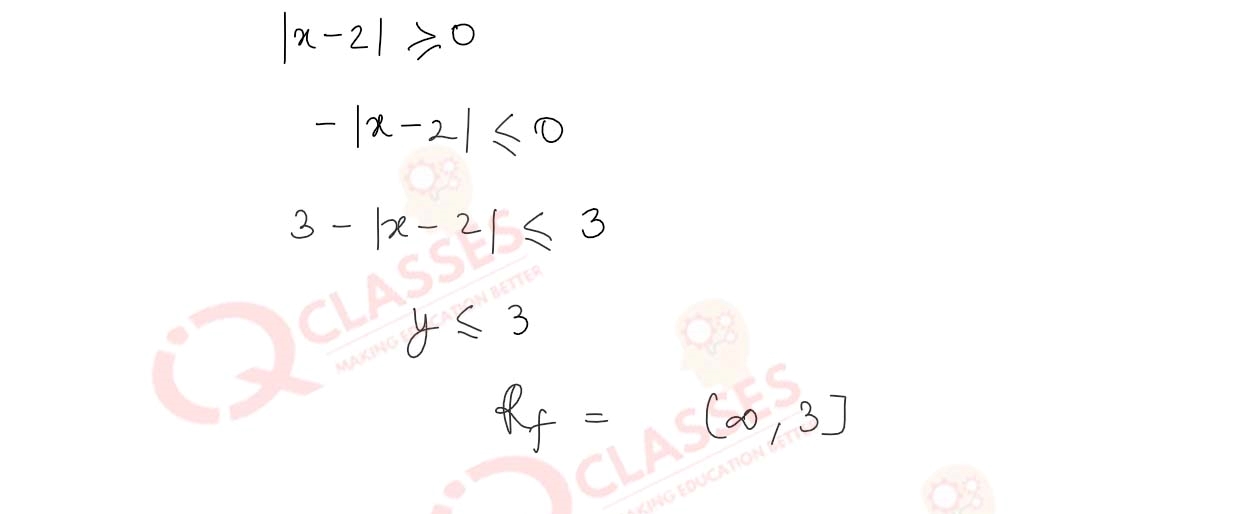 |x-2| ⩾ 0
- |x-2| ⩽ 0
3 - |x-2| ⩽ 3
y ⩽ 3
R_f = (∞, 3]
IQ CLASSES
MAKING EDUCATION BETTER
CLASSES
MAKING EDUCATION BETTER